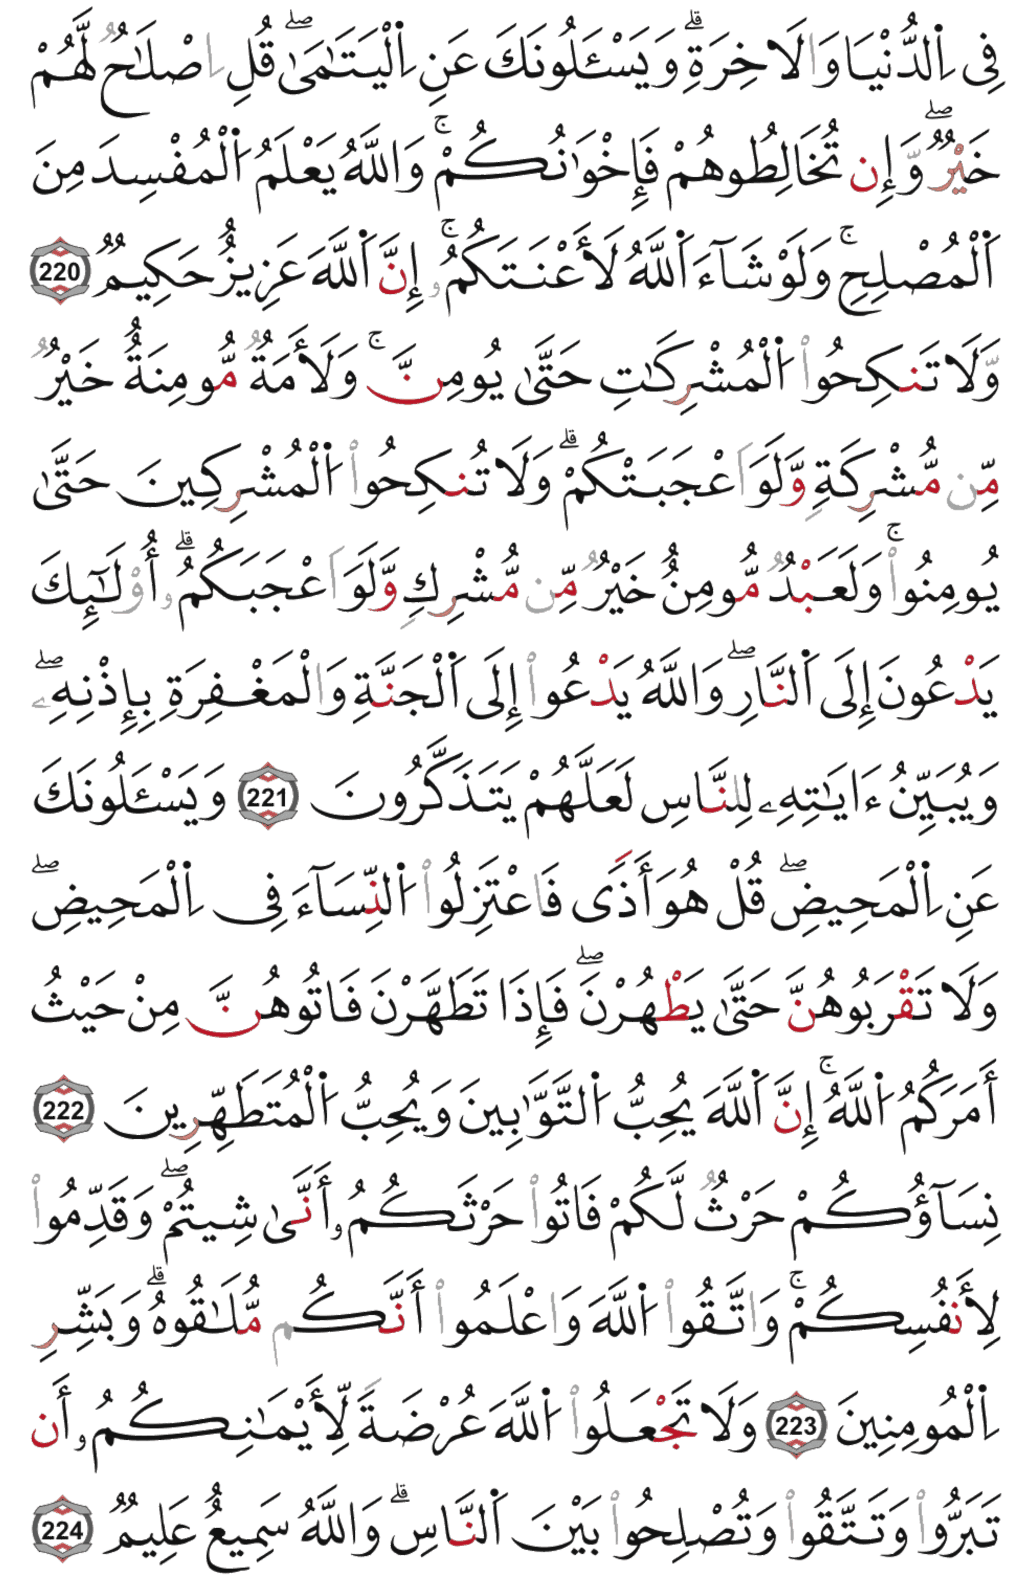 فِي اِ۬لدُّنْيَا وَالَاخِرَةِۖ وَيَسْـَٔلُونَكَ عَنِ اِ۬لْيَتَٰمَىٰۖ قُلِ اِصْلَٰحٞ لَّهُمْ
خَيْرٞۖ وَإِن تُخَالِطُوهُمْ فَإِخْوَٰنُكُمْۚ وَاللَّهُ يَعْلَمُ اُ۬لْمُفْسِدَ مِنَ
اَ۬لْمُصْلِحِۚ وَلَوْ شَآءَ اَ۬للَّهُ لَأَعْنَتَكُمُۥٓۚ إِنَّ اَ۬للَّهَ عَزِيزٌ حَكِيمٞۖ 220
وَلَا تَنكِحُواْ اُ۬لْمُشْرِكَٰتِ حَتَّىٰ يُومِنَّۚ وَلَأَمَةٞ مُّومِنَةٌ خَيْرٞ
مِّن مُّشْرِكَةٖ وَلَوَ اَعْجَبَتْكُمْۖ وَلَا تُنكِحُواْ اُ۬لْمُشْرِكِينَ حَتَّىٰ
يُومِنُواْۚ وَلَعَبْدٞ مُّومِنٌ خَيْرٞ مِّن مُّشْرِكٖ وَلَوَ اَعْجَبَكُمُۥٓۖ أُوْلَٰٓئِكَ
يَدْعُونَ إِلَى اَ۬لنَّارِۖ وَاللَّهُ يَدْعُواْ إِلَى اَ۬لْجَنَّةِ وَالْمَغْفِرَةِ بِإِذْنِهِۦۖ
وَيُبَيِّنُ ءَايَٰتِهِۦ لِلنَّاسِ لَعَلَّهُمْ يَتَذَكَّرُونَ 221 وَيَسْـَٔلُونَكَ
عَنِ اِ۬لْمَحِيضِۖ قُلْ هُوَ أَذٗى فَاعْتَزِلُواْ اُ۬لنِّسَآءَ فِي اِ۬لْمَحِيضِۖ
وَلَا تَقْرَبُوهُنَّ حَتَّىٰ يَطْهُرْنَۖ فَإِذَا تَطَهَّرْنَ فَاتُوهُنَّ مِنْ حَيْثُ
أَمَرَكُمُ اُ۬للَّهُۚ إِنَّ اَ۬للَّهَ يُحِبُّ اُ۬لتَّوَّٰبِينَ وَيُحِبُّ اُ۬لْمُتَطَهِّرِينَ 222
نِسَآؤُكُمْ حَرْثٞ لَّكُمْ فَاتُواْ حَرْثَكُمُۥٓ أَنَّىٰ شِيتُمْۖ وَقَدِّمُواْ
لِأَنفُسِكُمْۚ وَاتَّقُواْ اُ۬للَّهَ وَاعْلَمُواْ أَنَّكُم مُّلَٰقُوهُۖ وَبَشِّرِ
اِ۬لْمُومِنِينَ 223 وَلَا تَجْعَلُواْ اُ۬للَّهَ عُرْضَةٗ لِّأَيْمَٰنِكُمُۥٓ أَن
تَبَرُّواْ وَتَتَّقُواْ وَتُصْلِحُواْ بَيْنَ اَ۬لنَّاسِۖ وَاللَّهُ سَمِيعٌ عَلِيمٞ 224